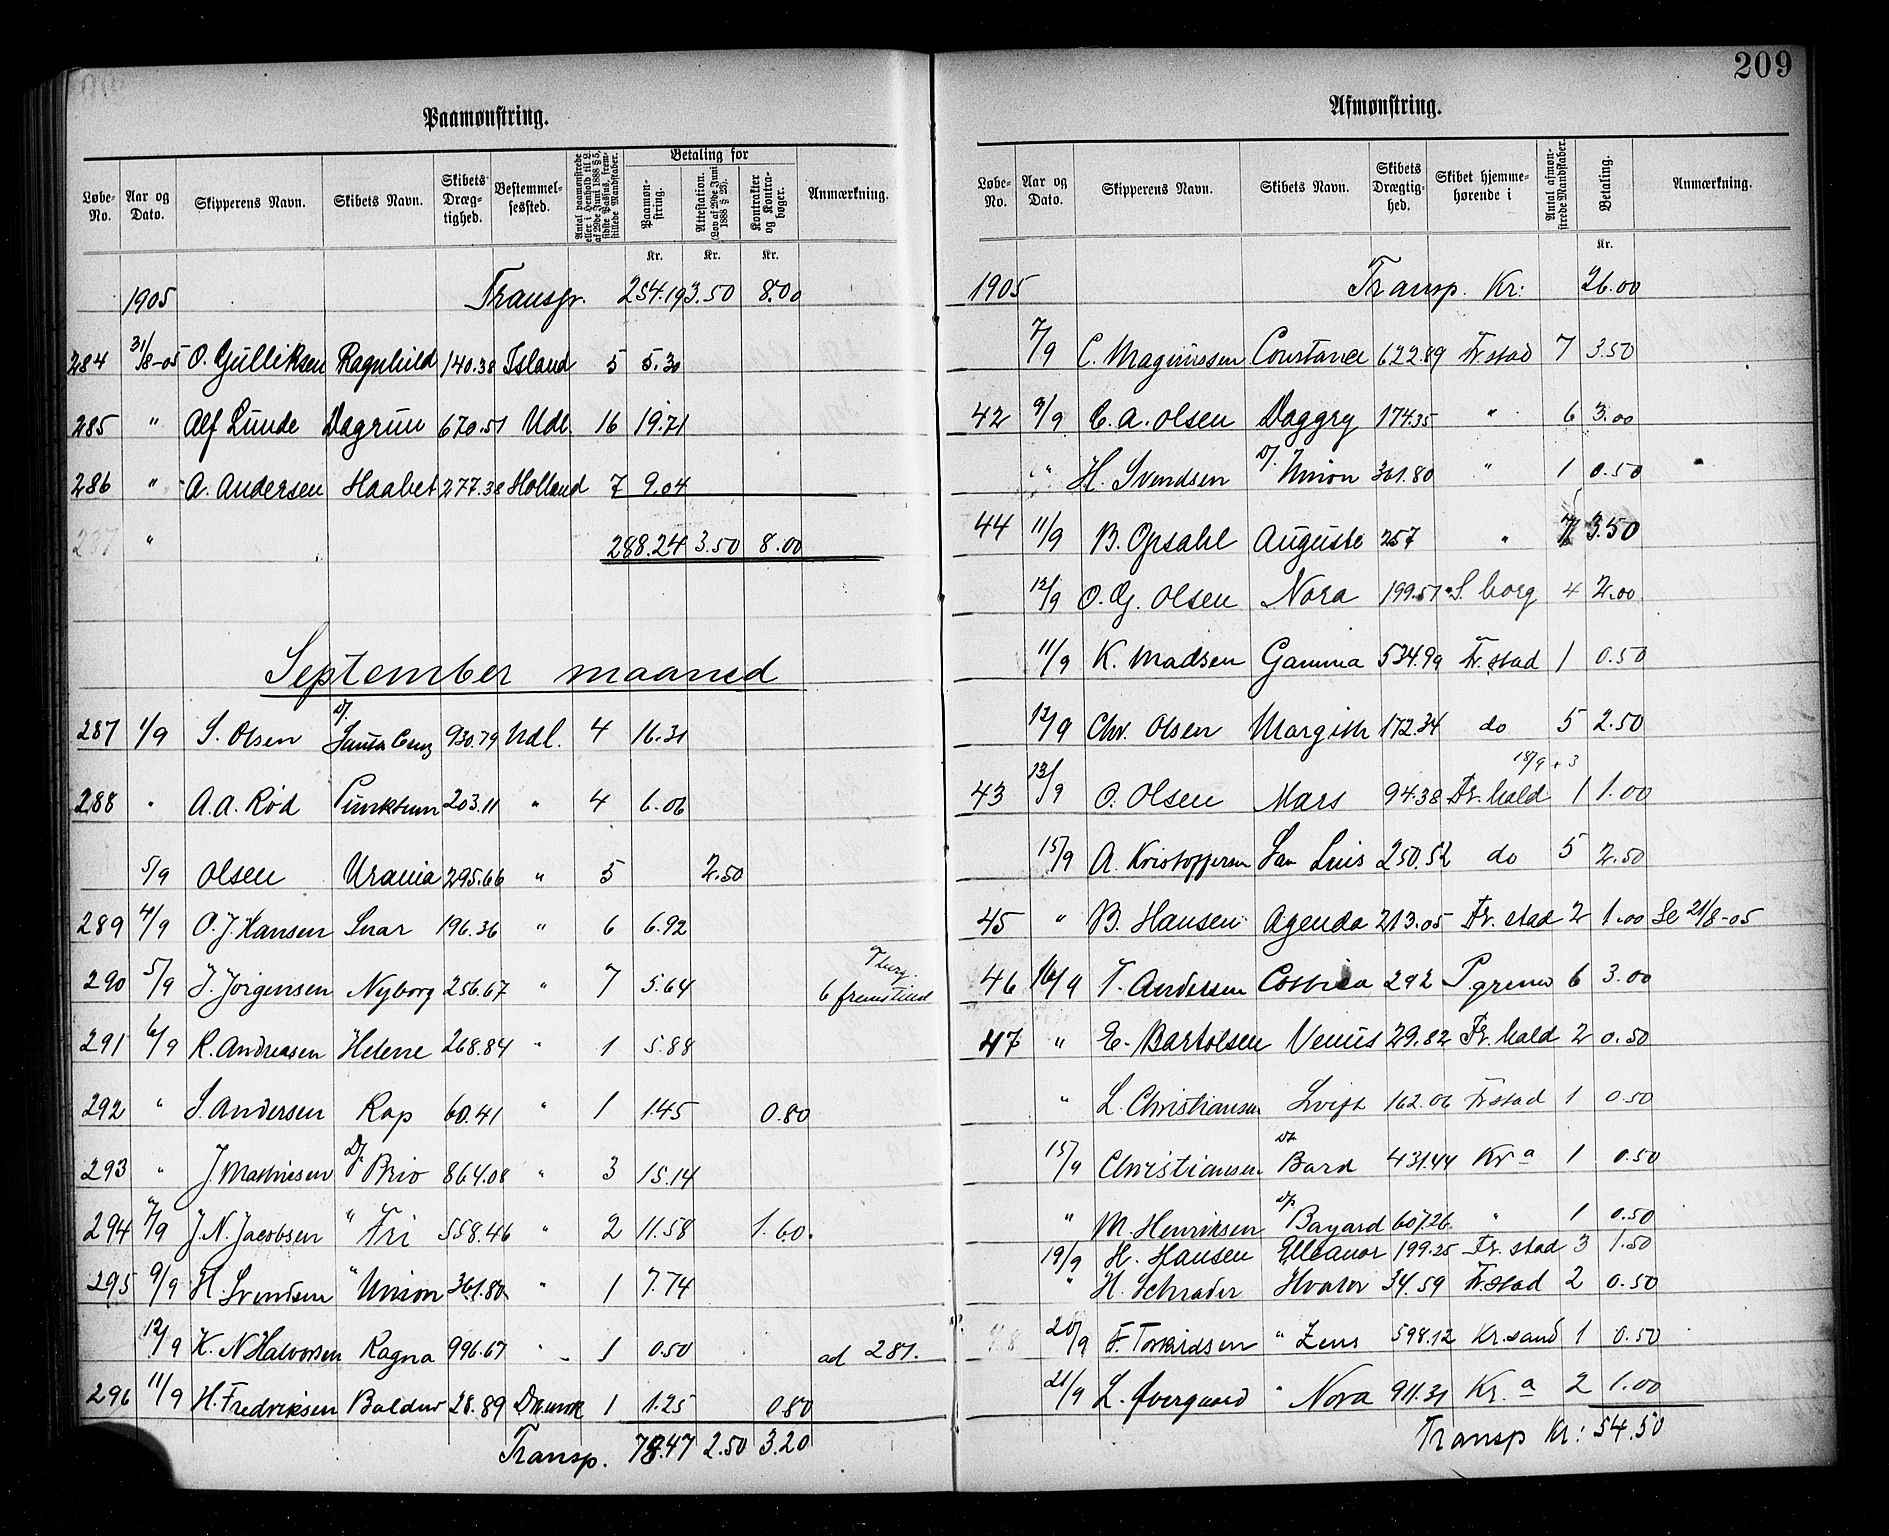 209
Paamønstring.
Løbe-No. Aar og Dato. Skipperens Navn. Skibets Navn. Skibets Dræg-tighed. Bestemmel-sessted. Antal paamønstrede eller i Henhold til L. af 29de Juni 1888 § 5, sidste Passus, frem-stillede Mandskaber. Betaling for Paamøn-string. Attestation. (Lov af 29de Juni 1888 § 23). Kontrakter og Kontra-bøger. Anmærkning.
Kr. Kr. Kr.
1905 Transp. 254.19 3.50 8.00
284 31/8-05 O. Gulliksen Ragnhild 140.38 Island 5 5.30
285 " Alf Lunde Dagrun 670.51 Udl. 16 19.71
286 " A. Andersen Haabet 277.38 Holland 7 9.04
287 " 288.24 3.50 8.00
September maaned
287 1/9 S. Olsen D/. Santa Cruz 930.79 Udl. 4 16.31
288 " A.A. Rød Punktum 203.11 " 4 6.06
5/9 Olsen Urania 295.66 " 5 2.50
289 4/9 O.J. Hansen Snar 196.36 " 6 6.92
290 5/9 J. Jørgensen Nyborg 256.67 " 7 5.64 6 fremstillet
291 6/9 R. Andreasen Helene 268.84 " 1 5.88
292 " S. Andersen Rap 60.41 " 1 1.45 0.80
293 " J. Mathiesen D/. Brio 864.08 " 3 15.14
294 7/9 J.N. Jacobsen " Fri 558.46 " 2 11.58 1.60.
295 9/9 H. Svendsen " Union 361.80 " 1 7.74
12/9 K. N Halvorsen Ragna 996.67 " 1 0.50 ad 281.
296 11/9 H. Fredriksen Baldur 28.89 Danmark 1 1.25 0.80
Transp. 78.47 2.50 3.20
Afmønstring.
Løbe-No. Aar og Dato. Skipperens Navn. Skibets Navn. Skibets Drægtig-hed. Skibet hjemme-hørende i Antal afmøn-strede Mandskaber. Betaling. Anmærkning.
Kr.
1905 Transp. Kr: 26.00
7/9 C. Magnussen Constance 622.89 Fr.stad 7 3.50
42 9/9 C. A. Olsen Daggry 174.35 " 6 3.00
" H. Svendsen D/. Union 361.80 " 1 0.50
44 11/9 B. Opsahl Auguste 257 " 7 3.50
12/9 O. G. Olsen Nora 199.51 S. borg 4 2.00
11/9 K. Madsen Gamma 534.99 Fr.stad 1 0.50
12/9 Chr. Olsen Margith 172.34 do 5 2.50
18/9 + 3
43 13/9 O. Olsen Mars 94.38 Fr. hald 1 1.00
15/9 A. Kristoffersen San Luis 250.52 do 5 2.50
45 " B. Hansen Agenda 213.05 Fr. stad 2 1.00 Se 21/8-05
46 16/9 T. Andersen 292 P grund 6 3.00
47 " E. Bartolsen Venus 29.82 Fr. hald 2 0.50
" L. Christiansen Svift 162.06 Fr.stad 1 0.50
15/9 Christiansen D/. Bard 431.44 Kr a 1 0.50
" M. Henriksen D/. Bayard 607.26 " 1 0.50
19/9 H. Hansen Elleanor 199.25 Fr. stad 3 1.50
" H. Schrader Hvator 34.59 Fr.stad 2 0.50
48 20/9 F. Torkildsen " Zeus 598.12 Kr.sand 1 0.50
21/9 L. Øvergaard " Nora 911.31 Kr. a 2 1.00
Transp Kr: 54.50